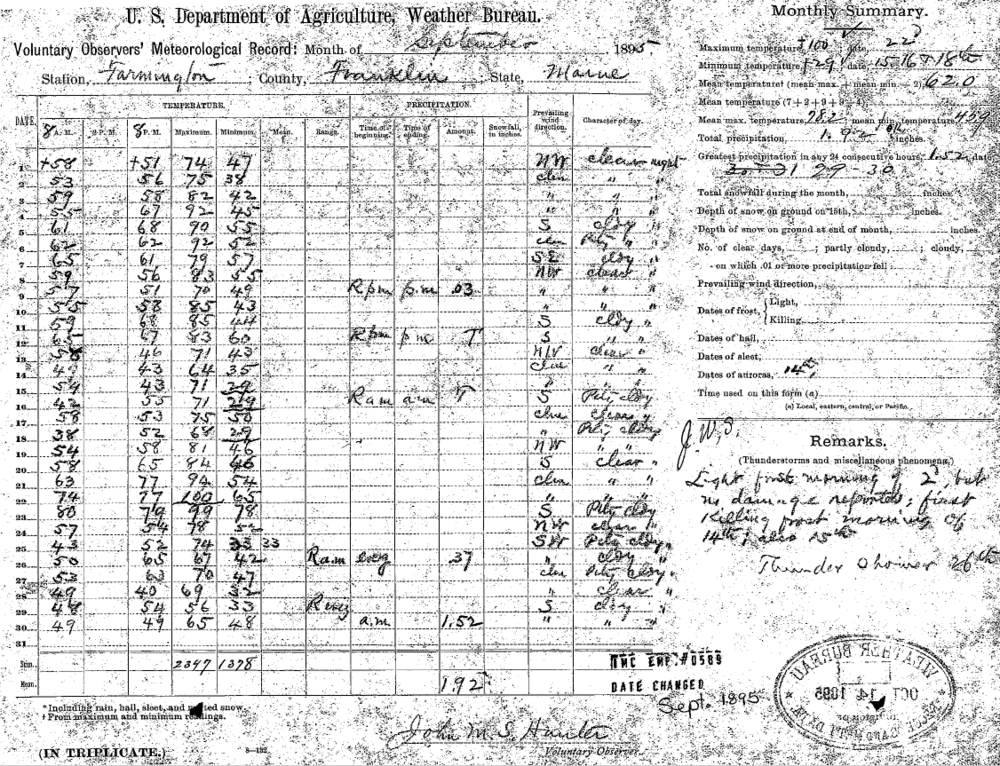 U. S. Department of Agriculture, Weather Bureau.
Voluntary Observers' Meteorological Record: Month of September 1895
Station, Farmington; County, Franklin; State, Maine
DATE. TEMPERATURE. PRECIPITATION. Prevailing wind direction. Character of day.
8 A. M. 2 P. M. 8 P. M. Maximum. Minimum. Mean. Range. Time of beginning. Time of ending. Amount. Snowfall, in inches.
1 +58 +51 74 47 NW clear night
2 53 56 75 38 " "
3 59 58 82 42 " "
4 55 67 92 45 " "
5 61 68 90 55 S cloy "
6 62 62 92 52 "
7 65 61 79 57 SE cloy
8 59 56 83 55 NW clear
9 57 51 70 49 R pm p.m .03 " "
10 55 58 85 43 " "
11 59 68 85 44 S cldy "
12 65 67 83 60 R pm p m T S " "
13 58 46 71 43 NW clear "
14 49 43 64 35 " "
15 54 43 71 29
16 42 55 71 29 R am a m T S
17 58 53 75 50 clear "
18 38 52 68 29 "
19 54 58 81 46 NW
20 58 65 84 46 S clear "
21 63 77 94 54 " "
22 74 77 100 65 " "
23 80 79 99 78 S
24 57 54 78 52 NW clear "
25 43 52 74 33 33 SW
26 50 65 67 42 R am evg .37 " cloy "
27 53 63 70 47
28 49 40 69 32 " clear "
29 48 54 56 33 R evg S cldy "
30 49 49 65 48 a.m. 1.52 " "
31
Sum. 2397 1378
Mean. 1.92
*Including rain, hail, sleet, and melted snow.
†From maximum and minimum readings.
(IN TRIPLICATE.) 8—132
John M. S. Hunter
Voluntary Observer.
NMC EMP. #0589
DATE CHANGED
Sept. 1895
Monthly Summary.
Maximum temperature, +100 date, 22d
Minimum temperature, +29 date 15-16+18th
Mean temperature† (mean max. + mean min. ÷ 2) 62.0
Mean temperature (7+2+9+9÷4)
Mean max. temperature, 78.2 mean min. temperature, 45.9
Total precipitation, 1.92 inches.
Greatest precipitation in any 24 consecutive hours, 1.52, date
29-30
Total snowfall during the month, inches.
Depth of snow on ground on 15th, inches.
Depth of snow on ground at end of month, inches.
No. of clear days, ; partly cloudy, ; cloudy,
on which .01 or more precipitation fell:
Prevailing wind direction,
Dates of frost, { Light,
Killing,
Dates of hail,
Dates of sleet,
Dates of auroras, 14th
Time used on this form (a)
(a) Local, eastern, central, or Pacific.
J. W. S.
Remarks.
(Thunderstorms and miscellaneous phenomena.)
Light frost morning of 2d, but
no damage reported; first
Killing frost morning of
14th, also 15th
Thunder shower 26th
WEATHER BUREAU
OCT 14 1895